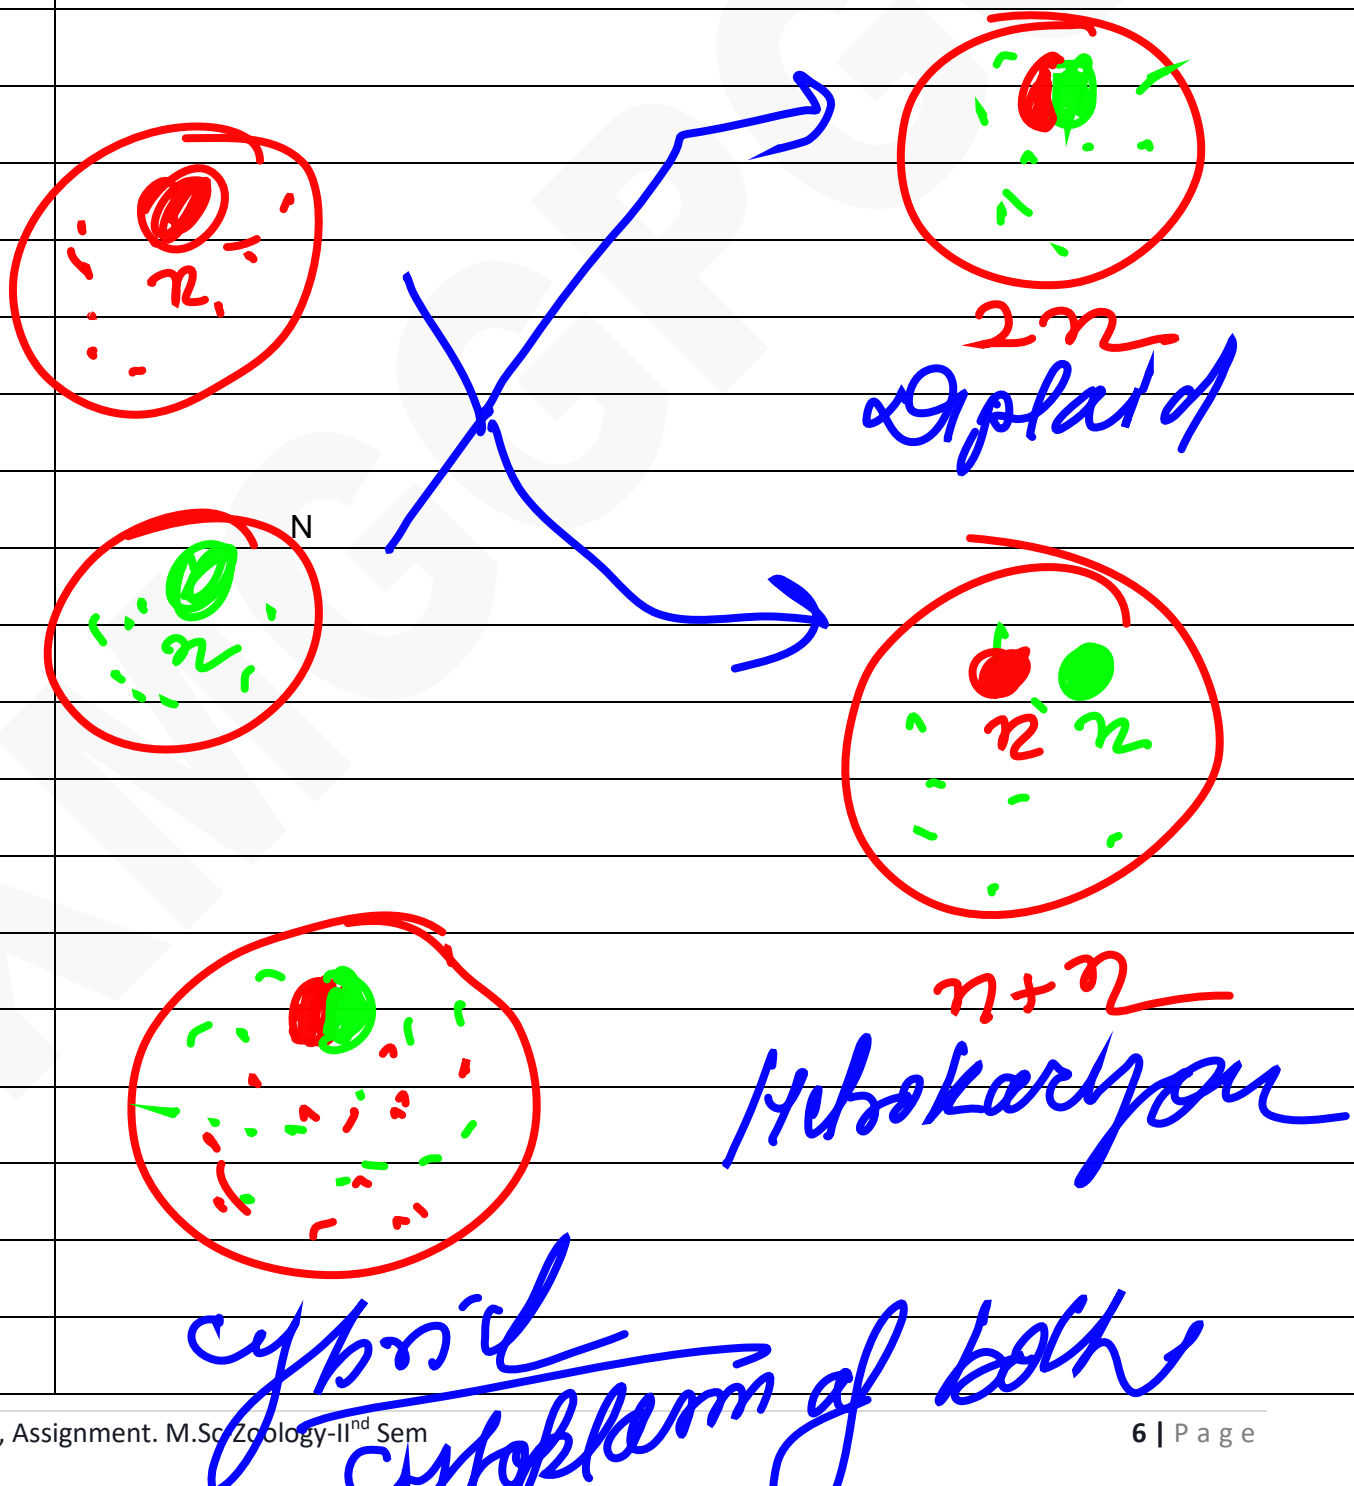 n
2n
Diploid
N
n
n n
n+n
Hetrokaryon
cybrid
cytoplasm of both
, Assignment. M.Sc Zoology-IInd Sem
6 | Page